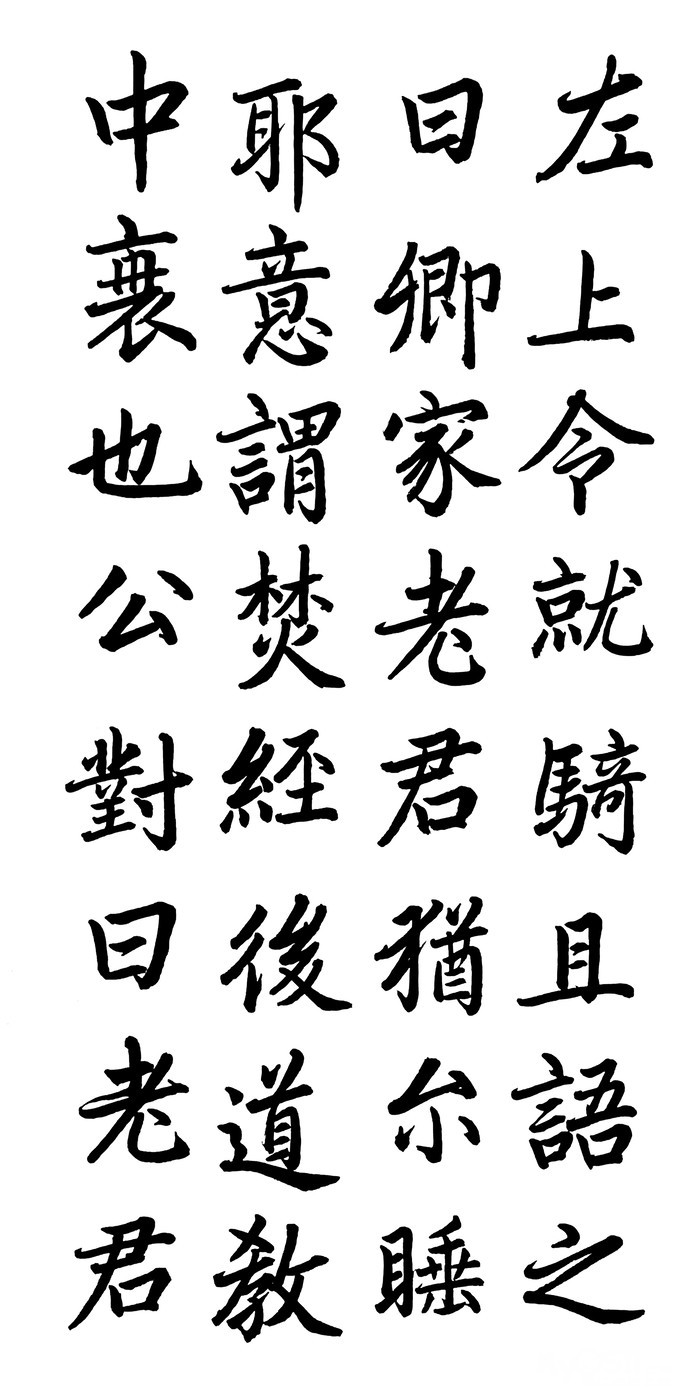 左上令就騎且語之
曰卿家老君猶尒睡
耶意謂焚經後道教
中衰也公對曰老君